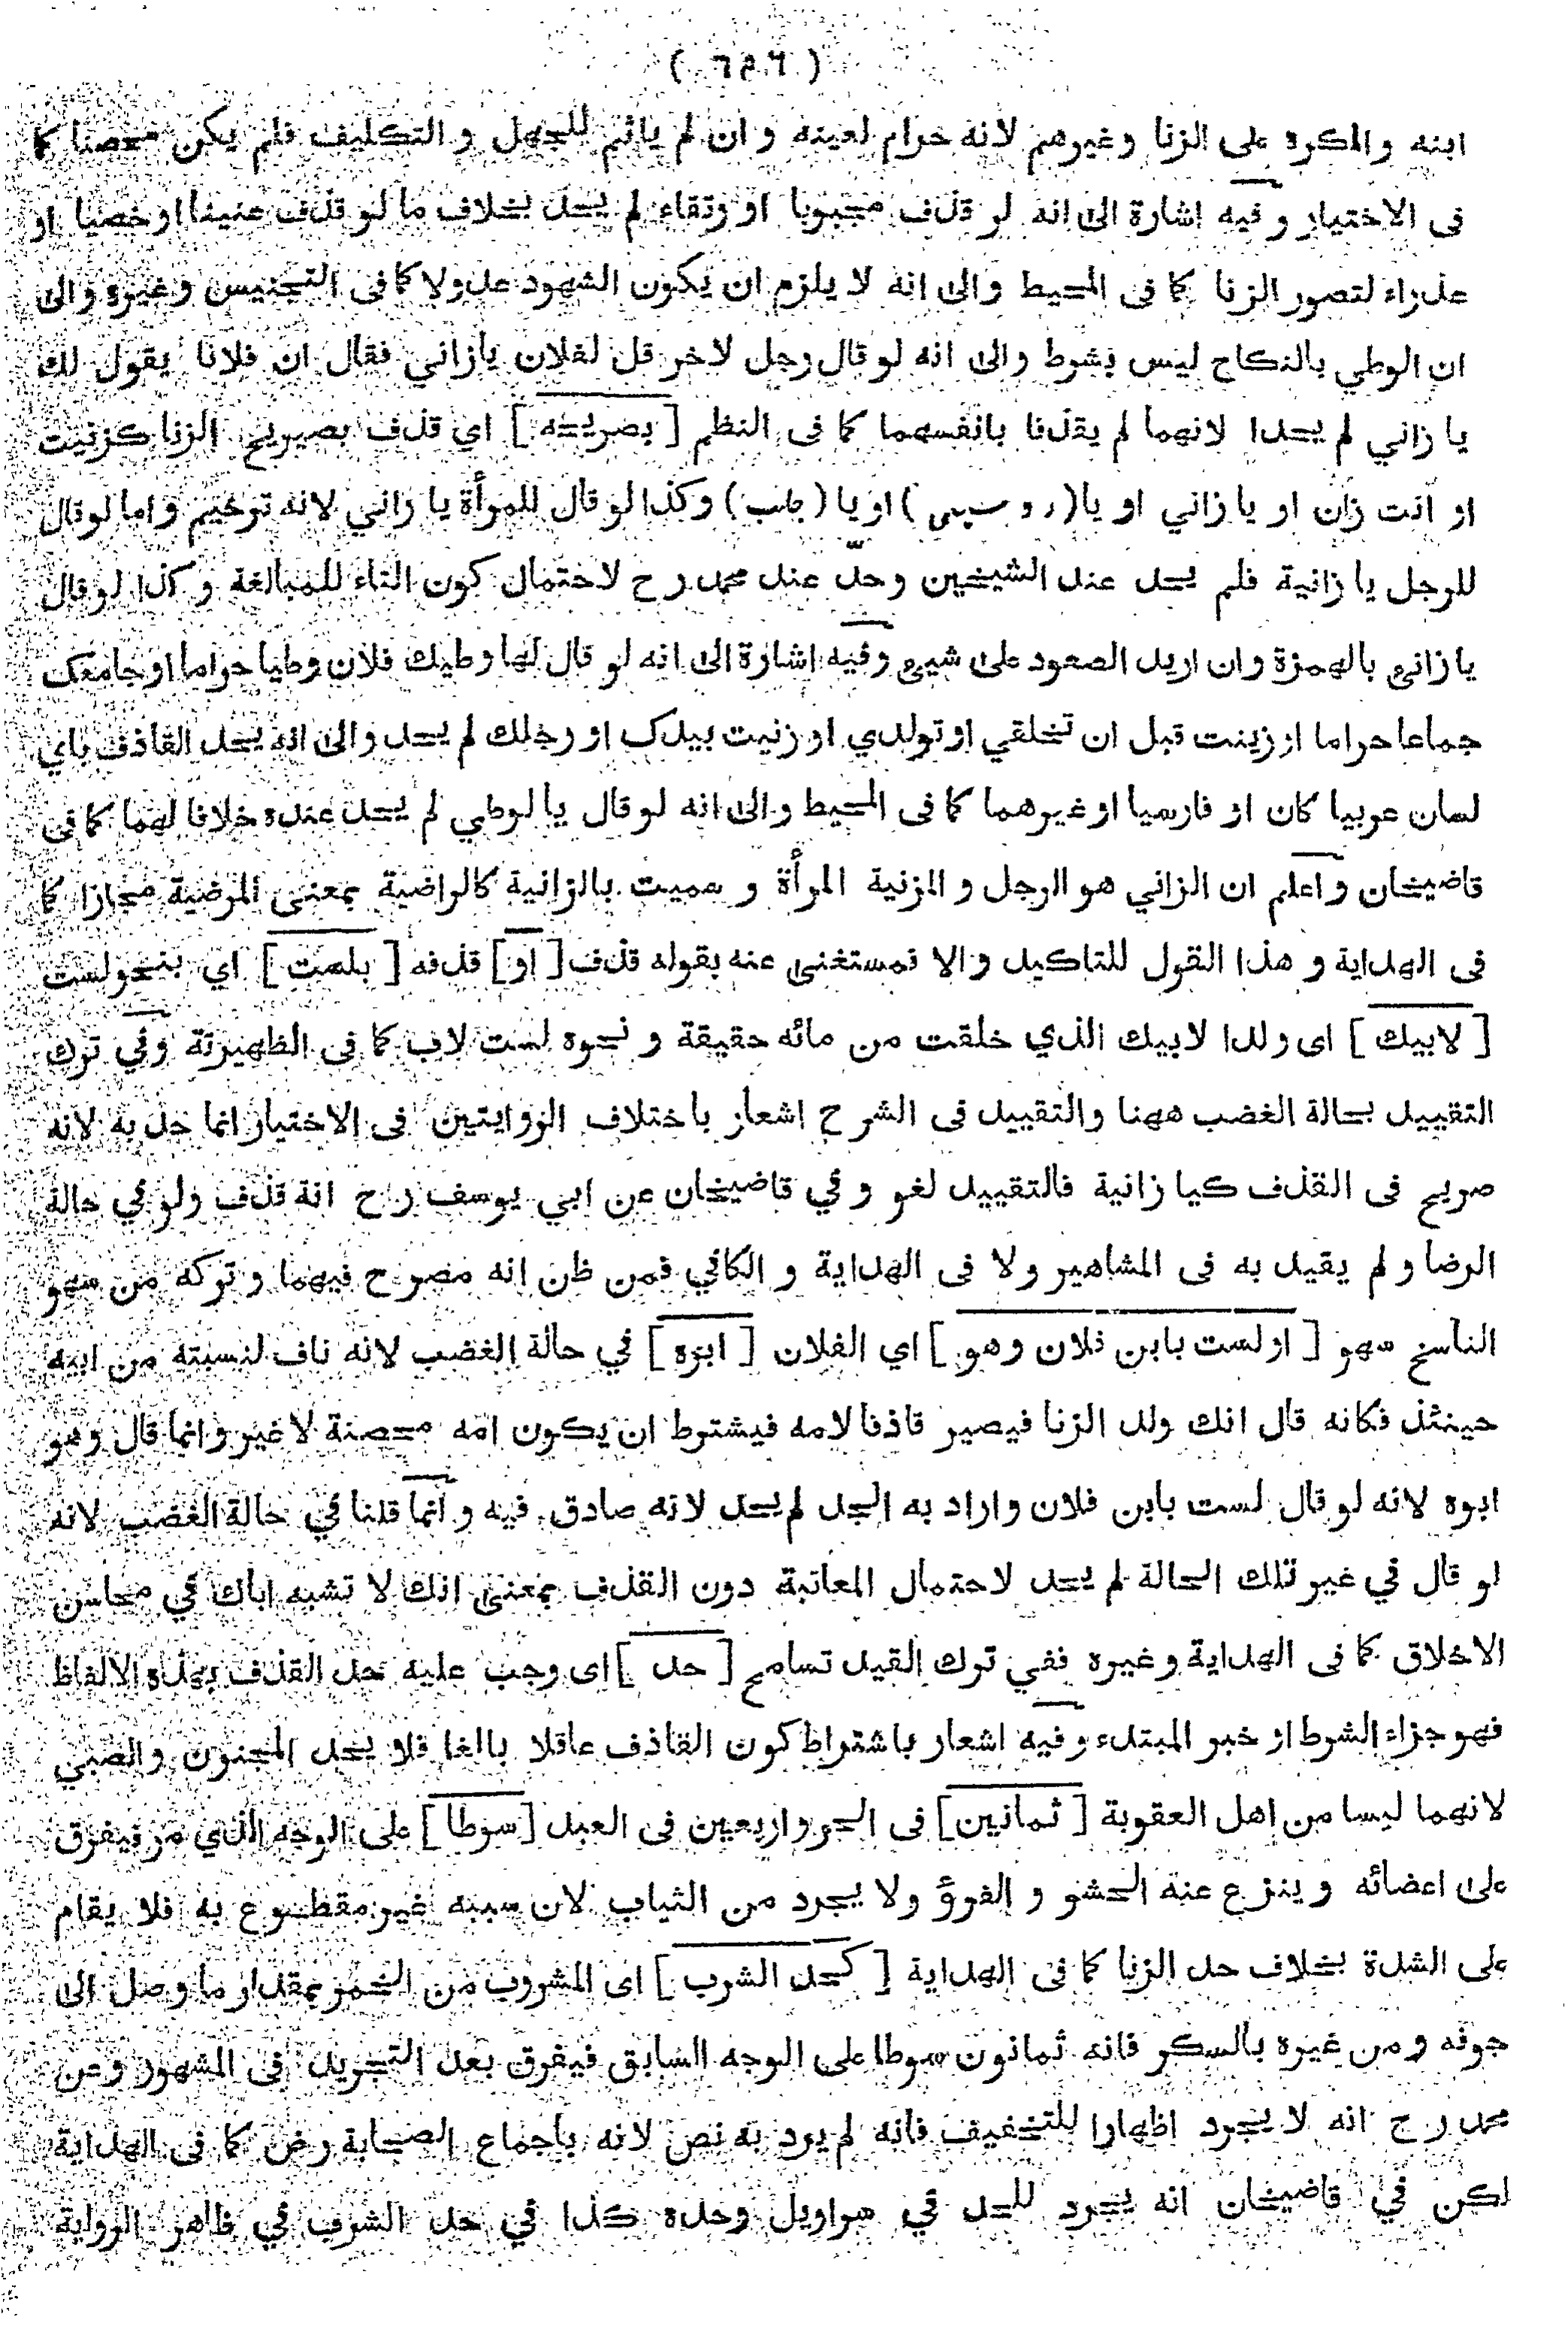 ( ٦٥٦ )
ابنه والمكره على الزنا وغيرهم لانه حرام لعينه و ان لم ياثم للجهل و التكليف فلم يكن محصنا كما
فى الاختيار و فيه اشارة الى انه لو قذف مجبوبا او رتقاء لم يحد بخلاف ما لو قذف عنينا او خصيا او
عذراء لتصور الزنا كما فى المحيط والى انه لا يلزم ان يكون الشهود عدولا كما فى التجنيس وغيره والى
ان الوطي بالنكاح ليس بشرط والى انه لو قال رجل لاخر قل لفلان يازاني فقال ان فلانا يقول لك
يا زاني لم يحدا لانهما لم يقذفا بانفسهما كما فى النظم [ بصريحه ] اي قذف بصريح الزنا كزنيت
او انت زان او يا زاني او يا (روسپى) او يا (جلب) وكذا لو قال للمرأة يا زاني لانه ترخيم واما لو قال
للرجل يا زانية فلم يحد عند الشيخين وحدّ عند محمد رح لاحتمال كون التاء للمبالغة و كذا لو قال
يا زانئ بالهمزة وان اريد الصعود على شيئ وفيه اشارة الى انه لو قال لها وطيك فلان وطيا حراما او جامعك
جماعا حراما او زينت قبل ان تخلقي او تولدي او زنيت بيدك او رجلك لم يحد والى انه يحد القاذف باي
لسان عربيا كان او فارسيا او غيرهما كما فى المحيط والى انه لو قال يا لوطي لم يحد عنده خلافا لهما كما فى
قاضيخان واعلم ان الزاني هو الرجل و المزنية المرأة و سميت بالزانية كالراضية بمعنى المرضية مجازا كما
فى الهداية و هذا القول للتاكيد والا فمستغنى عنه بقوله قذف [ او ] قذفه [ بلست ] اي بنحو لست
[ لابيك ] اى ولدا لابيك الذي خلقت من مائه حقيقة و نحوه لست لاب كما فى الظهيرية وفي ترك
التقييد بحالة الغضب ههنا والتقييد فى الشرح اشعار باختلاف الروايتين فى الاختيار انما حد به لانه
صريح فى القذف كيا زانية فالتقييد لغو و في قاضيخان عن ابي يوسف رح انه قذف ولو في حالة
الرضا و لم يقيد به فى المشاهير ولا فى الهداية و الكافي فمن ظن انه مصرح فيهما و تركه من سهو
الناسخ سهو [ او لست بابن فلان وهو ] اي الفلان [ ابوه ] في حالة الغضب لانه ناف لنسبته من ابيه
حينئذ فكانه قال انك ولد الزنا فيصير قاذفا لامه فيشترط ان يكون امه محصنة لا غير وانما قال وهو
ابوه لانه لو قال لست بابن فلان و اراد به الجد لم يحد لانه صادق فيه و انما قلنا في حالة الغضب لانه
لو قال في غير تلك الحالة لم يحد لاحتمال المعاتبة دون القذف بمعنى انك لا تشبه اباك في محاسن
الاخلاق كما فى الهداية وغيره ففي ترك القيد تسامح [ حد ] اى وجب عليه حد القذف بهذه الالفاظ
فهو جزاء الشرط او خبر المبتدء وفيه اشعار باشتراط كون القاذف عاقلا بالغا فلا يحد المجنون والصبي
لانهما ليسا من اهل العقوبة [ ثمانين ] فى الحر و اربعين فى العبد [ سوطا ] على الوجه الذي مر فيفرق
على اعضائه و ينزع عنه الحشو و الفرو ولا يجرد من الثياب لان سببه غير مقطوع به فلا يقام
على الشدة بخلاف حد الزنا كما فى الهداية [ كحد الشرب ] اى المشروب من الخمر بمقدار ما وصل الى
جوفه و من غيره بالسكر فانه ثمانون سوطا على الوجه السابق فيفرق بعد التجريد فى المشهور وعن
محمد رح انه لا يجرد اظهارا للتخفيف فانه لم يرد به نص لانه باجماع الصحابة رض كما فى الهداية
لكن في قاضيخان انه يجرد للحد في سراويل وحده كذا في حد الشرب في ظاهر الرواية